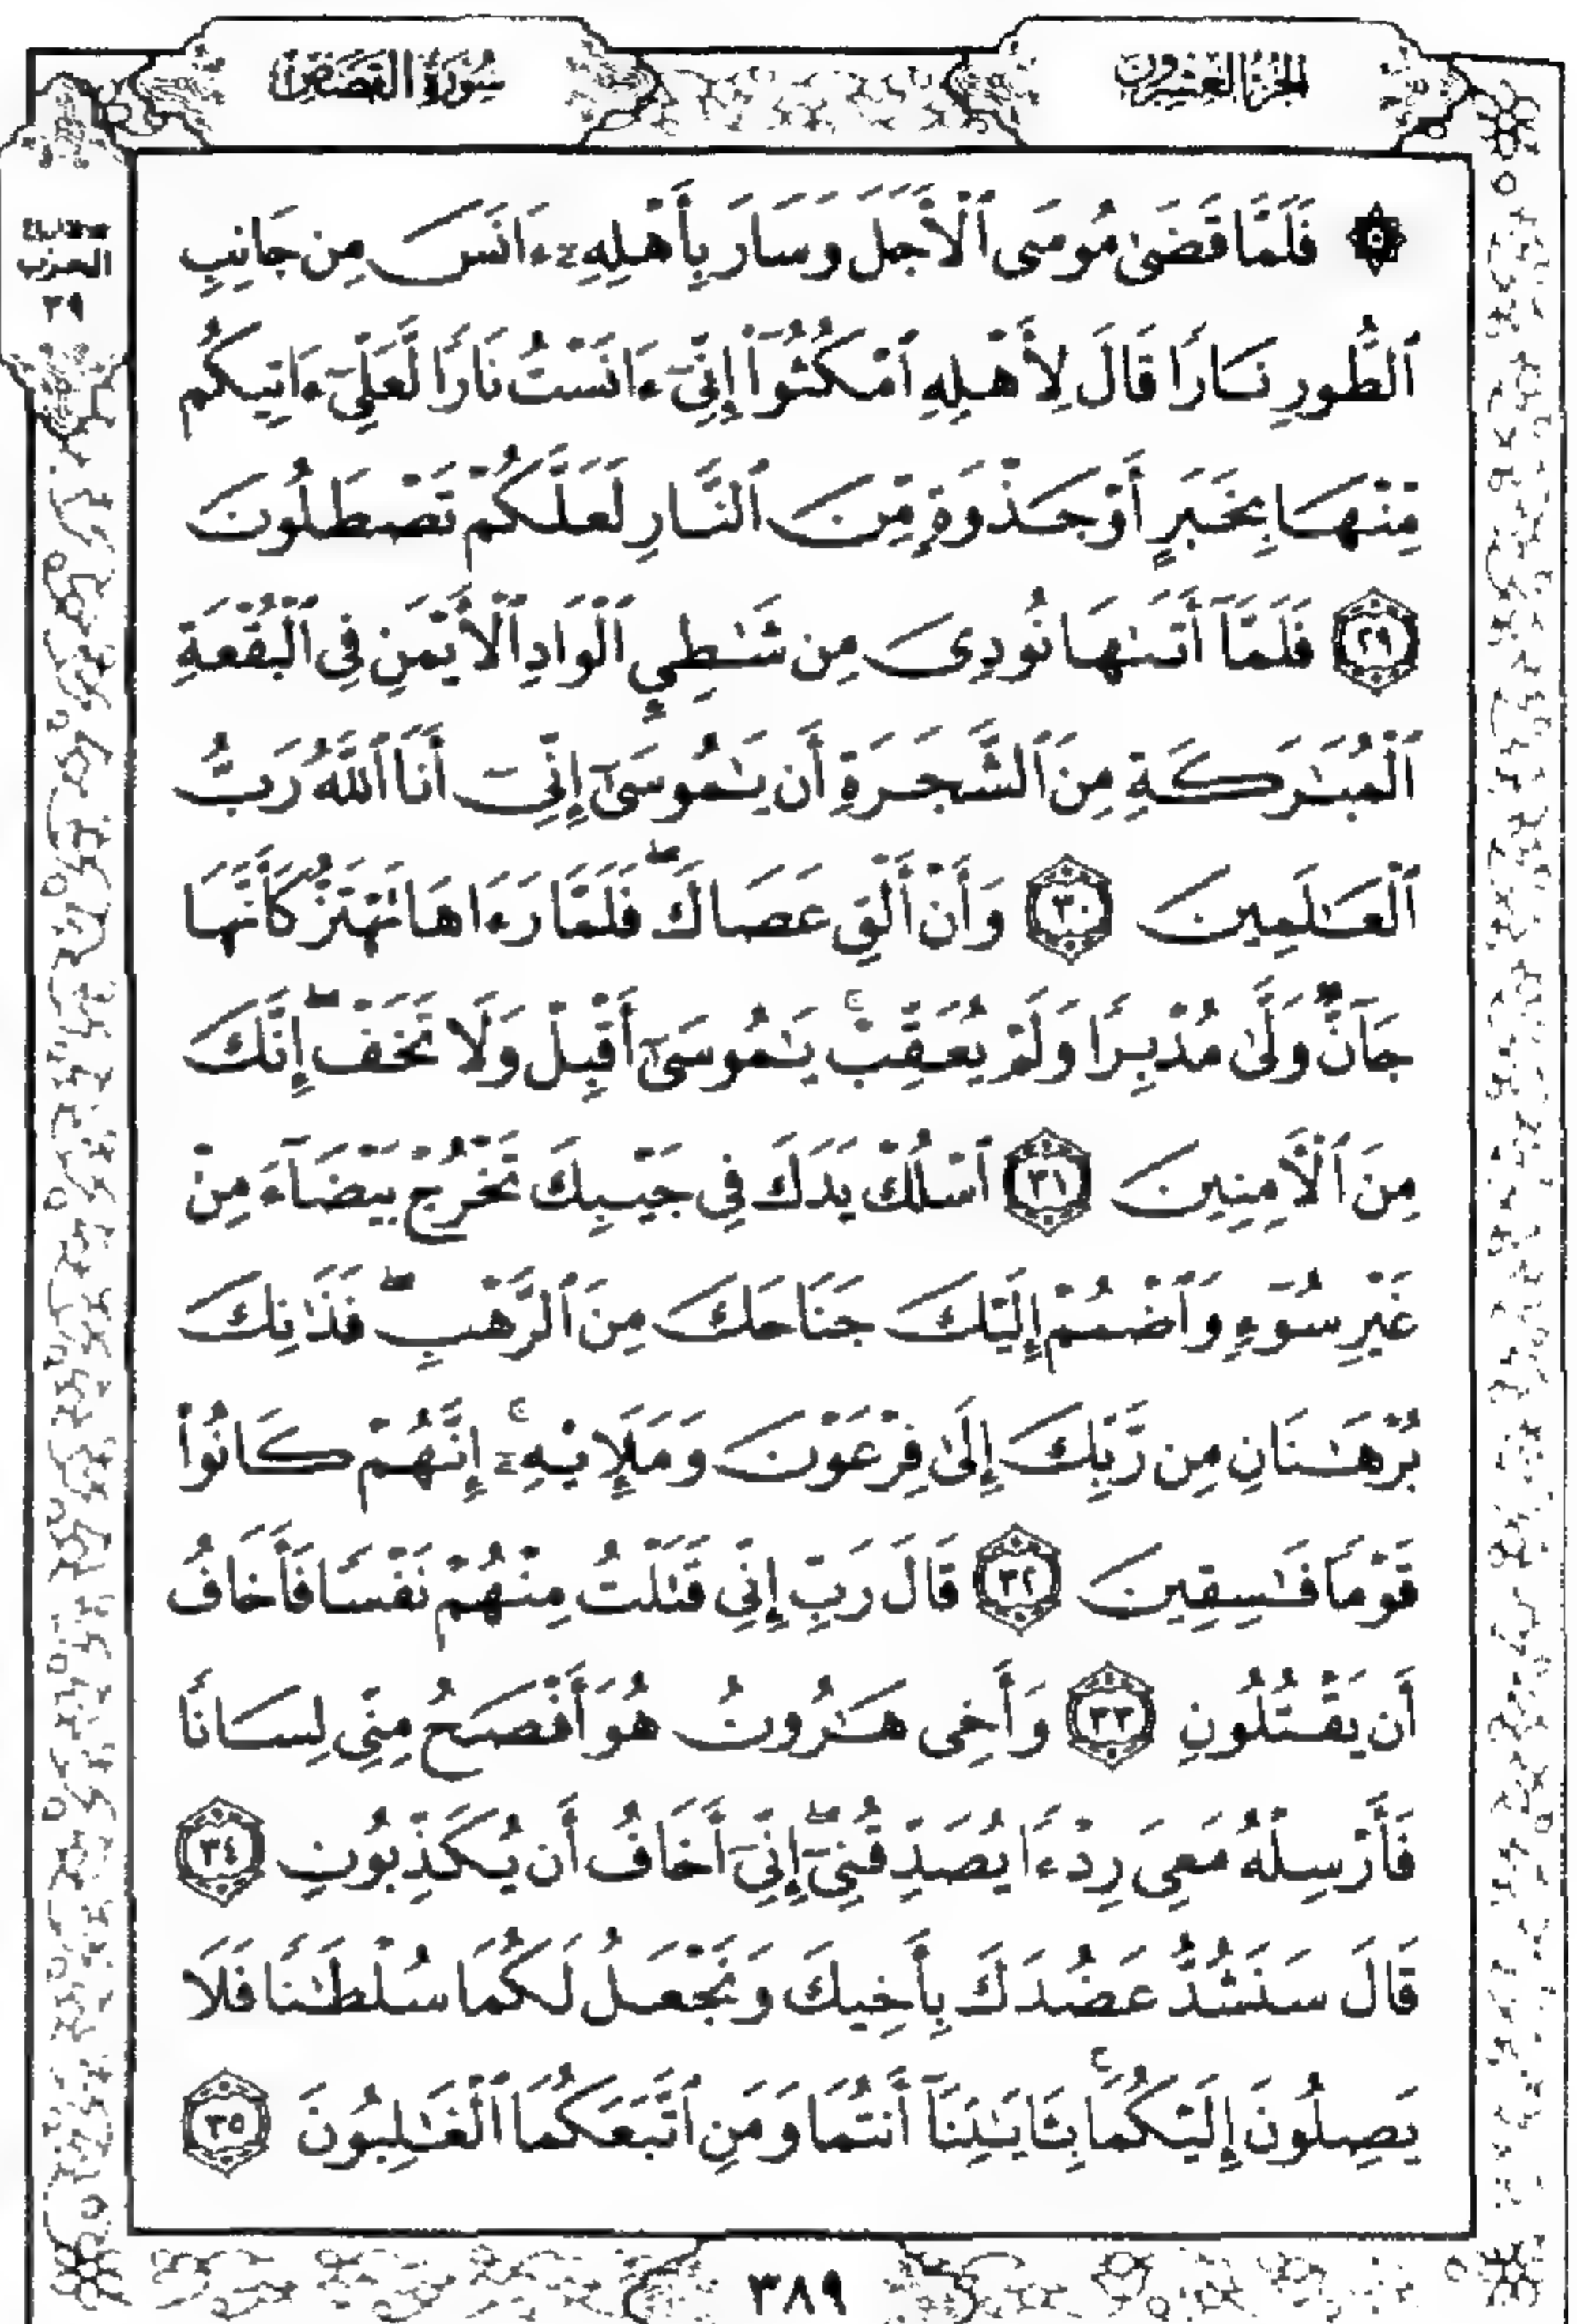 الجزء العشرون
سورة القصص
الحزب
٣٩
۞ فَلَمَّا قَضَىٰ مُوسَى ٱلْأَجَلَ وَسَارَ بِأَهْلِهِۦٓ ءَانَسَ مِن جَانِبِ
ٱلطُّورِ نَارًا قَالَ لِأَهْلِهِ ٱمْكُثُوٓا۟ إِنِّىٓ ءَانَسْتُ نَارًا لَّعَلِّىٓ ءَاتِيكُم
مِّنْهَا بِخَبَرٍ أَوْ جَذْوَةٍ مِّنَ ٱلنَّارِ لَعَلَّكُمْ تَصْطَلُونَ
٢٩ فَلَمَّآ أَتَىٰهَا نُودِىَ مِن شَٰطِئِ ٱلْوَادِ ٱلْأَيْمَنِ فِى ٱلْبُقْعَةِ
ٱلْمُبَٰرَكَةِ مِنَ ٱلشَّجَرَةِ أَن يَٰمُوسَىٰٓ إِنِّىٓ أَنَا ٱللَّهُ رَبُّ
ٱلْعَٰلَمِينَ ٣٠ وَأَنْ أَلْقِ عَصَاكَ ۖ فَلَمَّا رَءَاهَا تَهْتَزُّ كَأَنَّهَا
جَآنٌّ وَلَّىٰ مُدْبِرًا وَلَمْ يُعَقِّبْ ۚ يَٰمُوسَىٰٓ أَقْبِلْ وَلَا تَخَفْ ۖ إِنَّكَ
مِنَ ٱلْءَامِنِينَ ٣١ ٱسْلُكْ يَدَكَ فِى جَيْبِكَ تَخْرُجْ بَيْضَآءَ مِنْ
غَيْرِ سُوٓءٍ وَٱضْمُمْ إِلَيْكَ جَنَاحَكَ مِنَ ٱلرَّهْبِ ۖ فَذَٰنِكَ
بُرْهَٰنَانِ مِن رَّبِّكَ إِلَىٰ فِرْعَوْنَ وَمَلَإِي۟هِۦٓ ۚ إِنَّهُمْ كَانُوا۟
قَوْمًا فَٰسِقِينَ ٣٢ قَالَ رَبِّ إِنِّى قَتَلْتُ مِنْهُمْ نَفْسًا فَأَخَافُ
أَن يَقْتُلُونِ ٣٣ وَأَخِى هَٰرُونُ هُوَ أَفْصَحُ مِنِّى لِسَانًا
فَأَرْسِلْهُ مَعِىَ رِدْءًا يُصَدِّقُنِىٓ ۖ إِنِّىٓ أَخَافُ أَن يُكَذِّبُونِ ٣٤
قَالَ سَنَشُدُّ عَضُدَكَ بِأَخِيكَ وَنَجْعَلُ لَكُمَا سُلْطَٰنًا فَلَا
يَصِلُونَ إِلَيْكُمَا ۚ بِـَٔايَٰتِنَآ أَنتُمَا وَمَنِ ٱتَّبَعَكُمَا ٱلْغَٰلِبُونَ ٣٥
٣٨٩